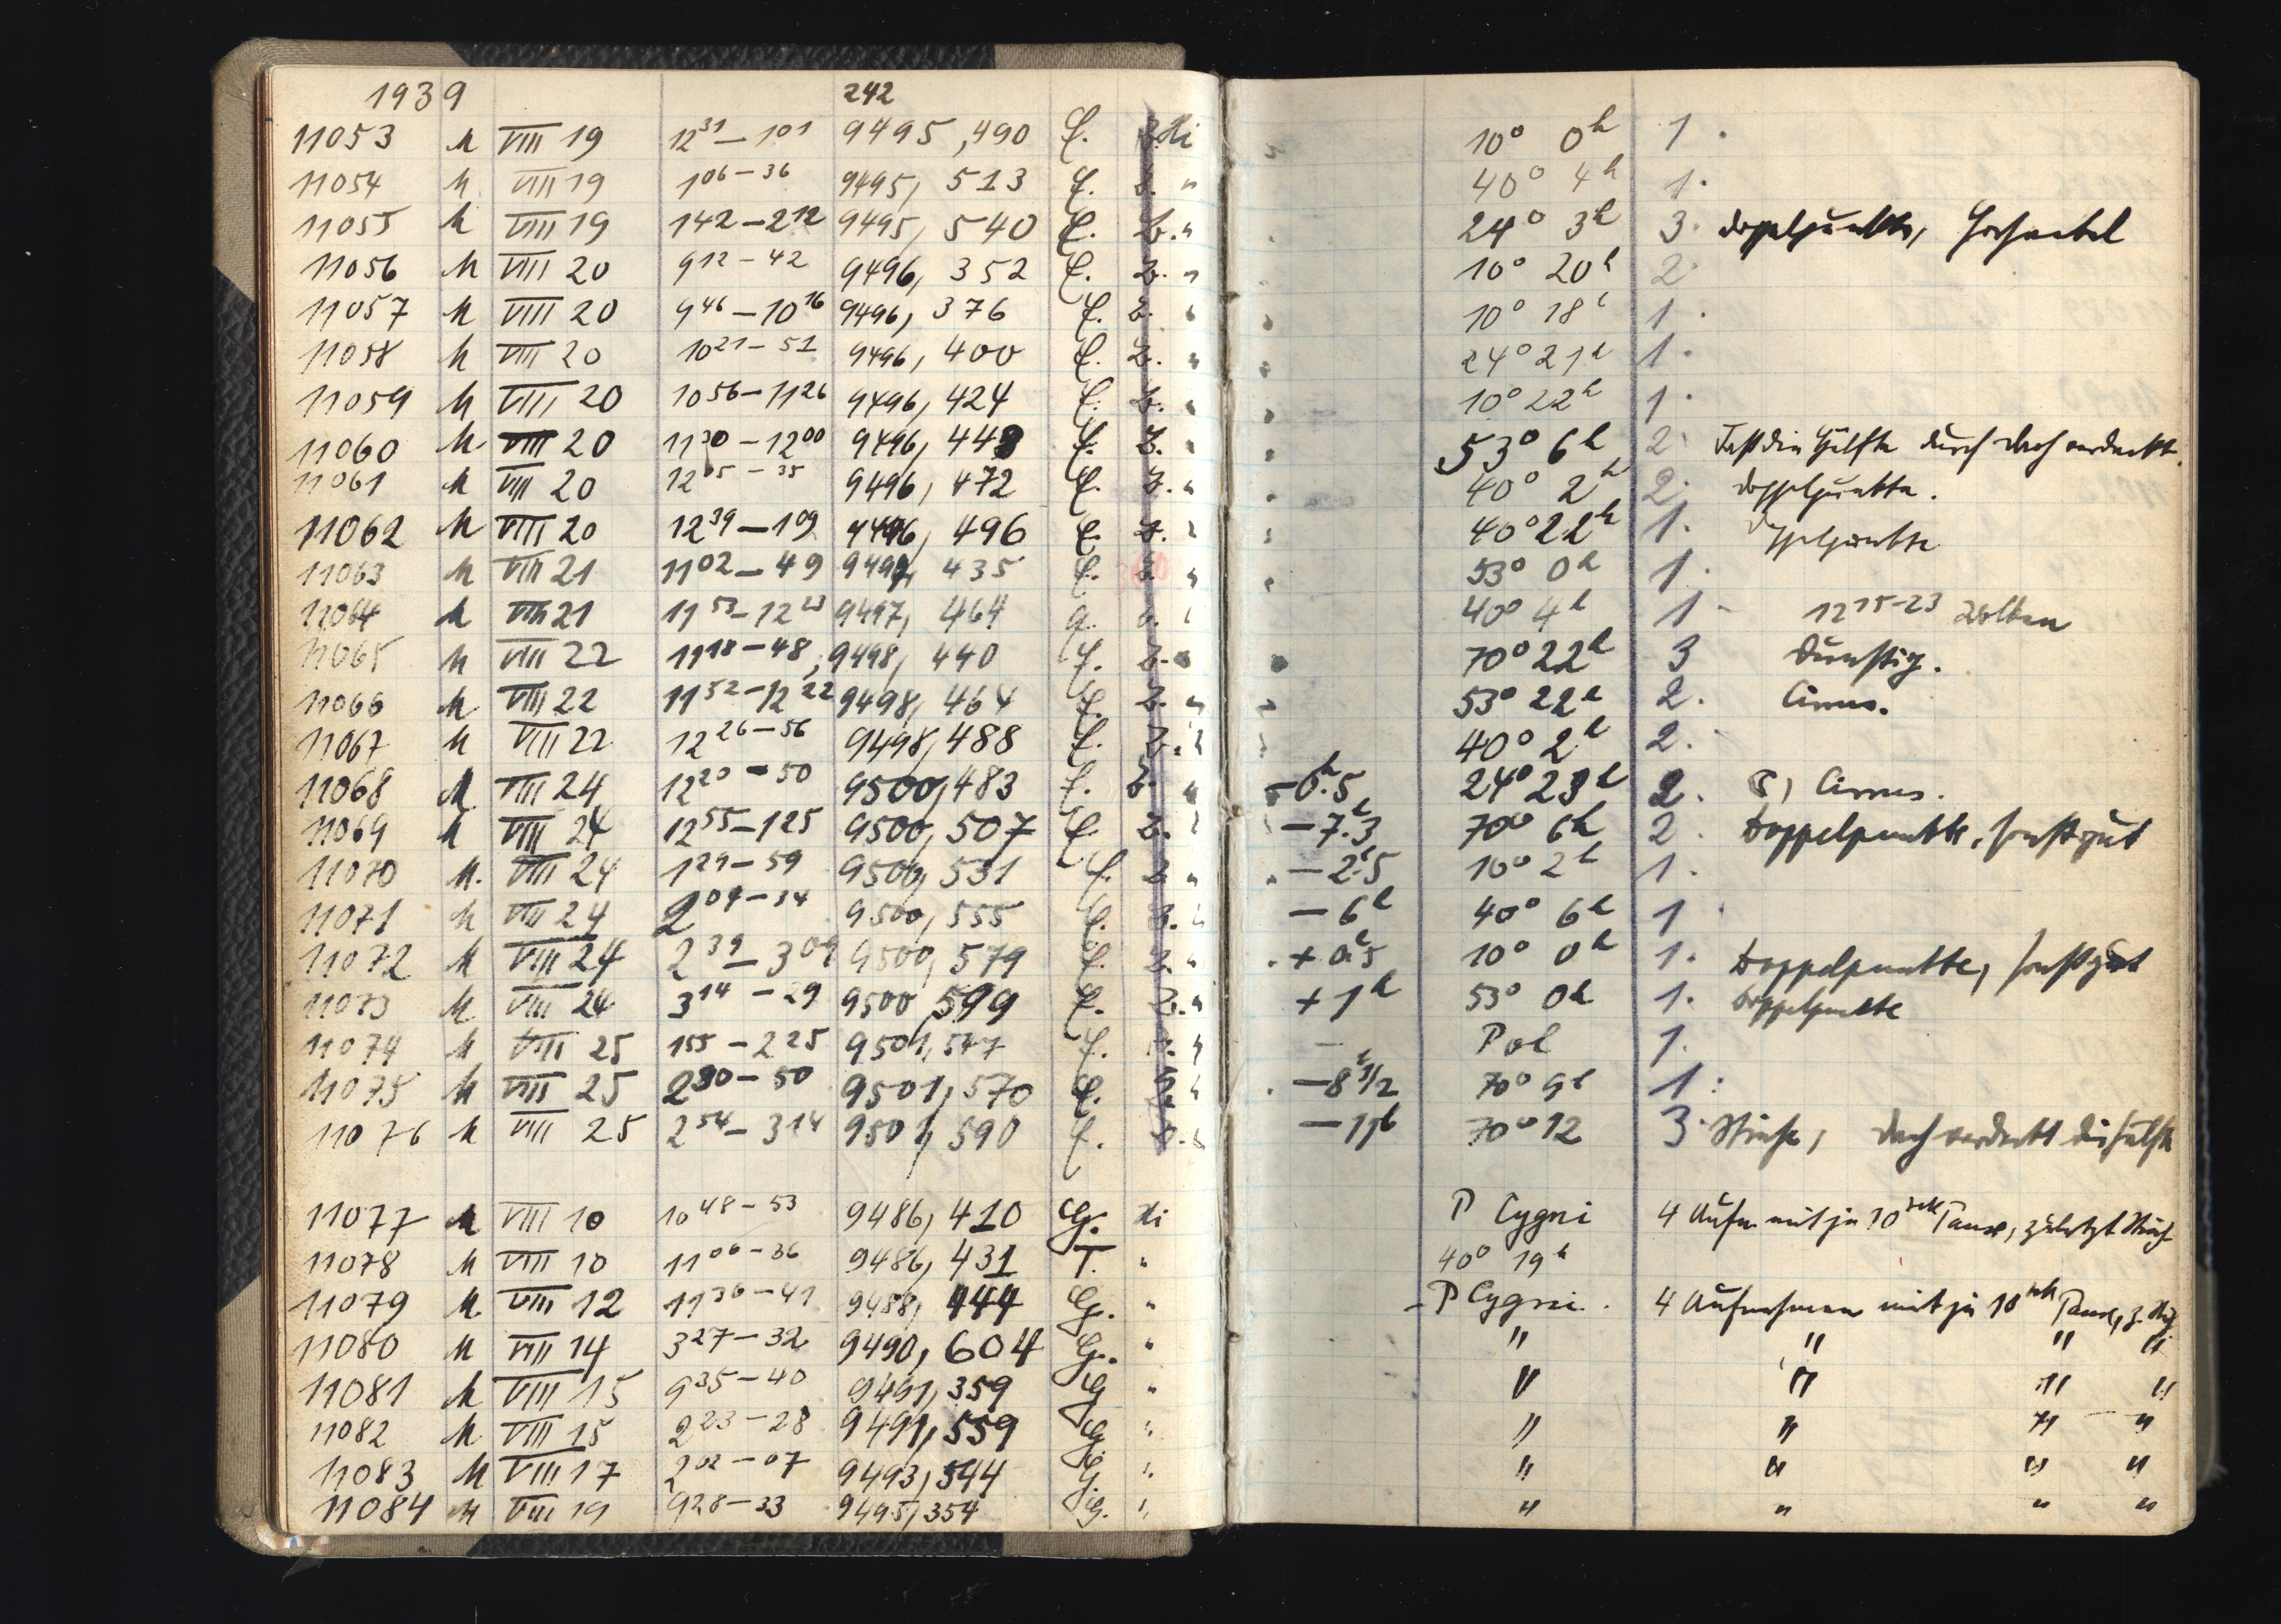 1939 242
11053 M VIII 19 12 31 – 1 01 9495,490 E. Z. Hi 10° 0h 1.
11054 M VIII 19 1 06 – 36 9495, 513 E. Z. " 40° 4h 1.
11055 M VIII 19 1 42 – 2 12 9495, 540 E. Z. " 24° 3h 3. Doppelpunkte,
11056 M VIII 20 9 12 – 42 9496, 352 E. Z. " 10° 20h 2
11057 M VIII 20 9 46 – 10 16 9496, 376 E. Z. " 10° 18h 1.
11058 M VIII 20 10 21 – 51 9496, 400 E. Z. " 24° 21h 1.
11059 M VIII 20 10 56 – 11 26 9496, 424 E. Z. " 10° 22h 1.
11060 M VIII 20 11 30 – 12 00 9496, 448 E. Z. " 53° 6h 2. Fast die Hälfte durch Dach verdeckt.
11061 M VIII 20 12 05 – 35 9496, 472 E. Z. " 40° 2h 2. Doppelpunkte.
11062 M VIII 20 12 39 – 1 09 9496, 496 E. Z. " 40° 22h 1. Doppelpunkte
11063 M VIII 21 11 02 – 49 9497, 435 E. Z. " 53° 0h 1.
11064 M VIII 21 11 53 – 12 23 9497, 464 " 40° 4h 1 12 15–23 Wolken
11065 M VIII 22 11 18 – 48 9498, 440 E. Z. " 70° 22h 3 Dunstig.
11066 M VIII 22 11 52 – 12 22 9498, 464 E. Z. " 53° 22h 2. Cirrus.
11067 M VIII 22 12 26 – 56 9498, 488 E. Z. " 40° 2h 2.
11068 M VIII 24 12 20 – 50 9500, 483 E. Z. " –6h.5 24° 23h 2. Cirrus.
11069 M VIII 24 12 55 – 1 25 9500, 507 E. Z. " –7h.3 70° 6h 2. Doppelpunkte, sonst gut
11070 M. VIII 24 1 29 – 59 9500, 531 E. Z. " –2h.5 10° 2h 1.
11071 M VIII 24 2 04 – 34 9500, 555 E. Z. " –6h 40° 6h 1
11072 M VIII 24 2 39 – 3 09 9500, 579 E. Z. " +0h.5 10° 0h 1. Doppelpunkte, sonst gut
11073 M VIII 24 3 14 – 29 9500 599 E. Z. " +1h 53° 0h 1. Doppelpunkte
11074 M VIII 25 1 55 – 2 25 9501, 547 E. Z. " – Pol 1.
11075 M VIII 25 2 30 – 50 9501, 570 E. Z. " –8h 1/2 70° 9h 1.
11076 M VIII 25 2 54 – 3 14 9501, 590 E. Z. " –11h 70° 12 3. Striche, Dach verdeckt die Hälfte
11077 M VIII 10 10 48 – 53 9486, 410 G. Hi P Cygni 4 Aufn. mit je 10 sek Pause, zuletzt Strich
11078 M VIII 10 11 06 – 36 9486, 431 T. " 40° 19h
11079 M VIII 12 11 36 – 41 9488, 444 G. " P Cygni. 4 Aufnahmen mit je 10 sek Pause, z. Str.
11080 M VIII 14 3 27 – 32 9490, 604 G. " " " " "
11081 M VIII 15 9 35 – 40 9491, 359 G " " " " "
11082 M VIII 15 2 23 – 28 9491, 559 G " " " " "
11083 M VIII 17 2 02 – 07 9493, 544 G " " " " "
11084 M VIII 19 9 28 – 33 9495, 354 G. " " " " "